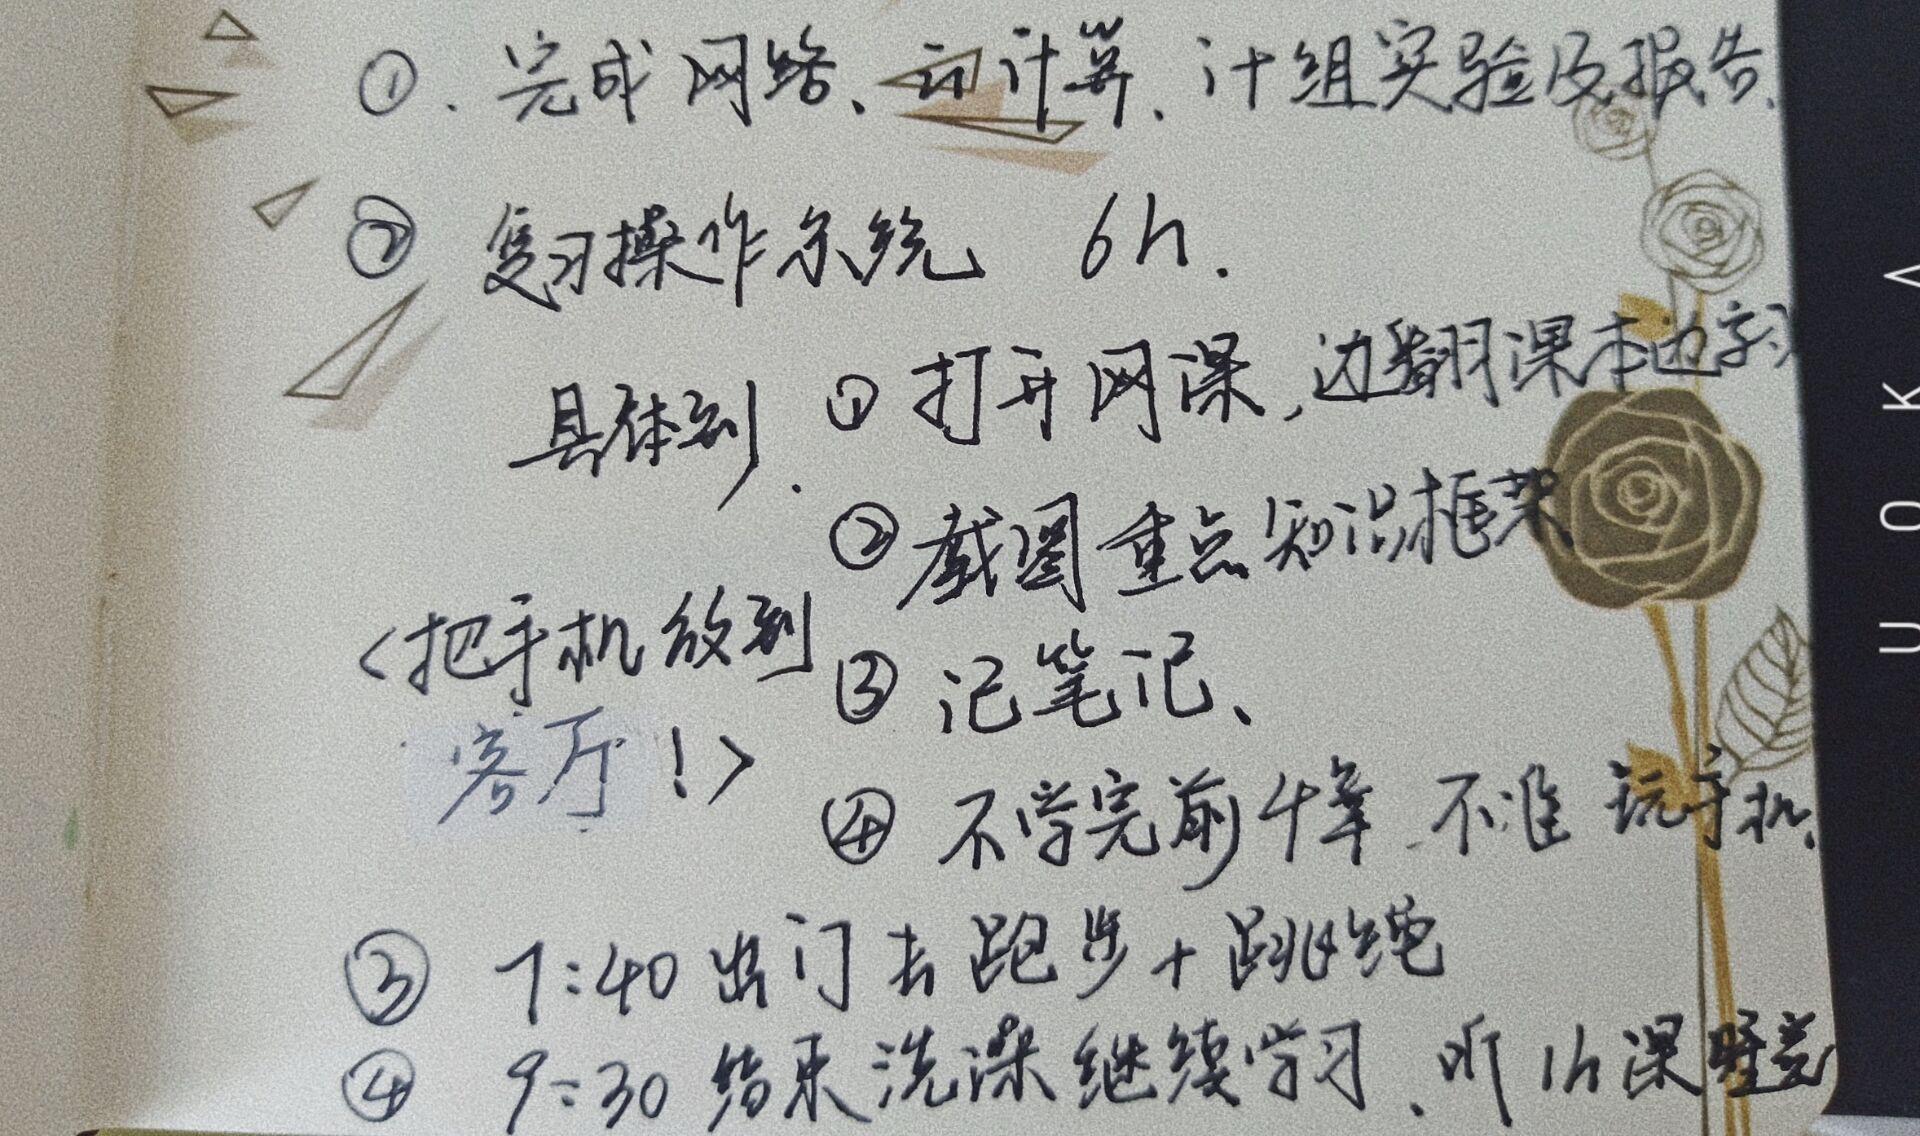 ①.完成网络、云计算、计组实验及报告.
② 复习操作系统 6h.
具体到. ①打开网课,边翻课本边学习
②截图重点知识框架
<把手机放到
客厅!>
③ 记笔记、
④ 不学完前4章.不准玩手机.
③ 7:40出门去跑步+跳绳
④ 9:30 结束洗澡继续学习.听1h课睡觉
UOKA